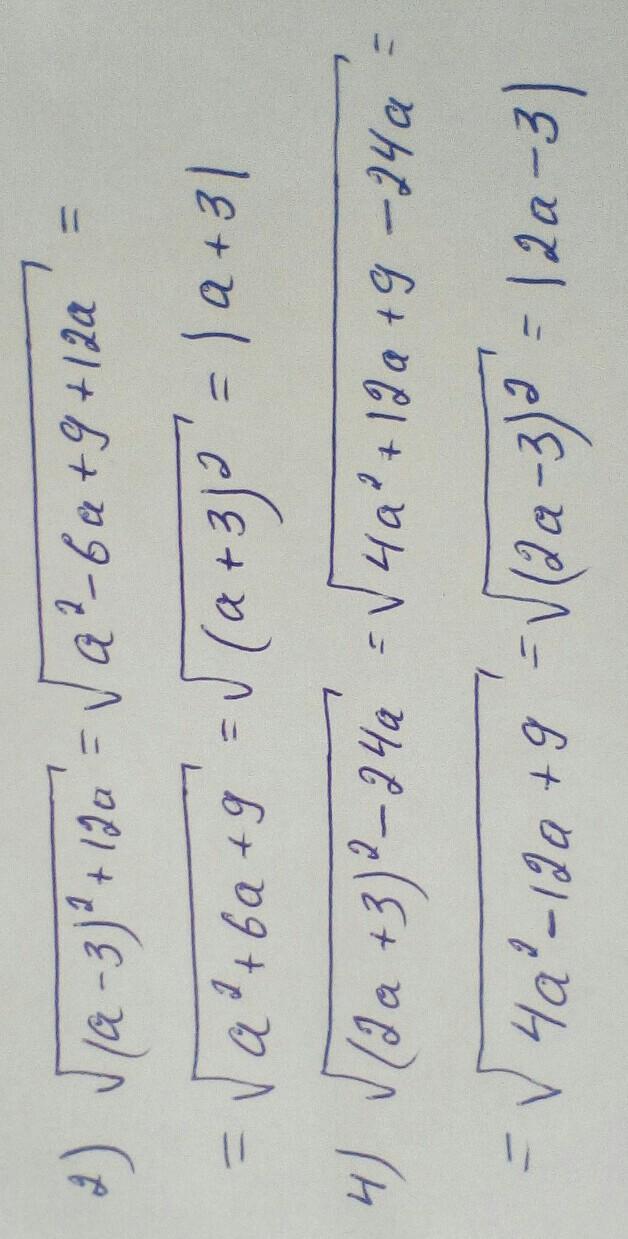 2) √((a-3)²+12a) = √(a²-6a+9+12a) =
= √(a²+6a+9) = √((a+3)²) = |a+3|
4) √((2a+3)²-24a) = √(4a²+12a+9-24a) =
= √(4a²-12a+9) = √((2a-3)²) = |2a-3|